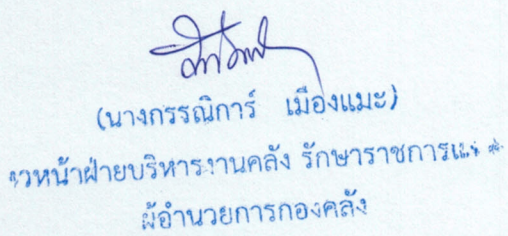 (นางกรรณิการ์ เมืองแมะ)
หน้าฝ่ายบริหารงานคลัง รักษาราชการ
ผู้อำนวยการกองคลัง